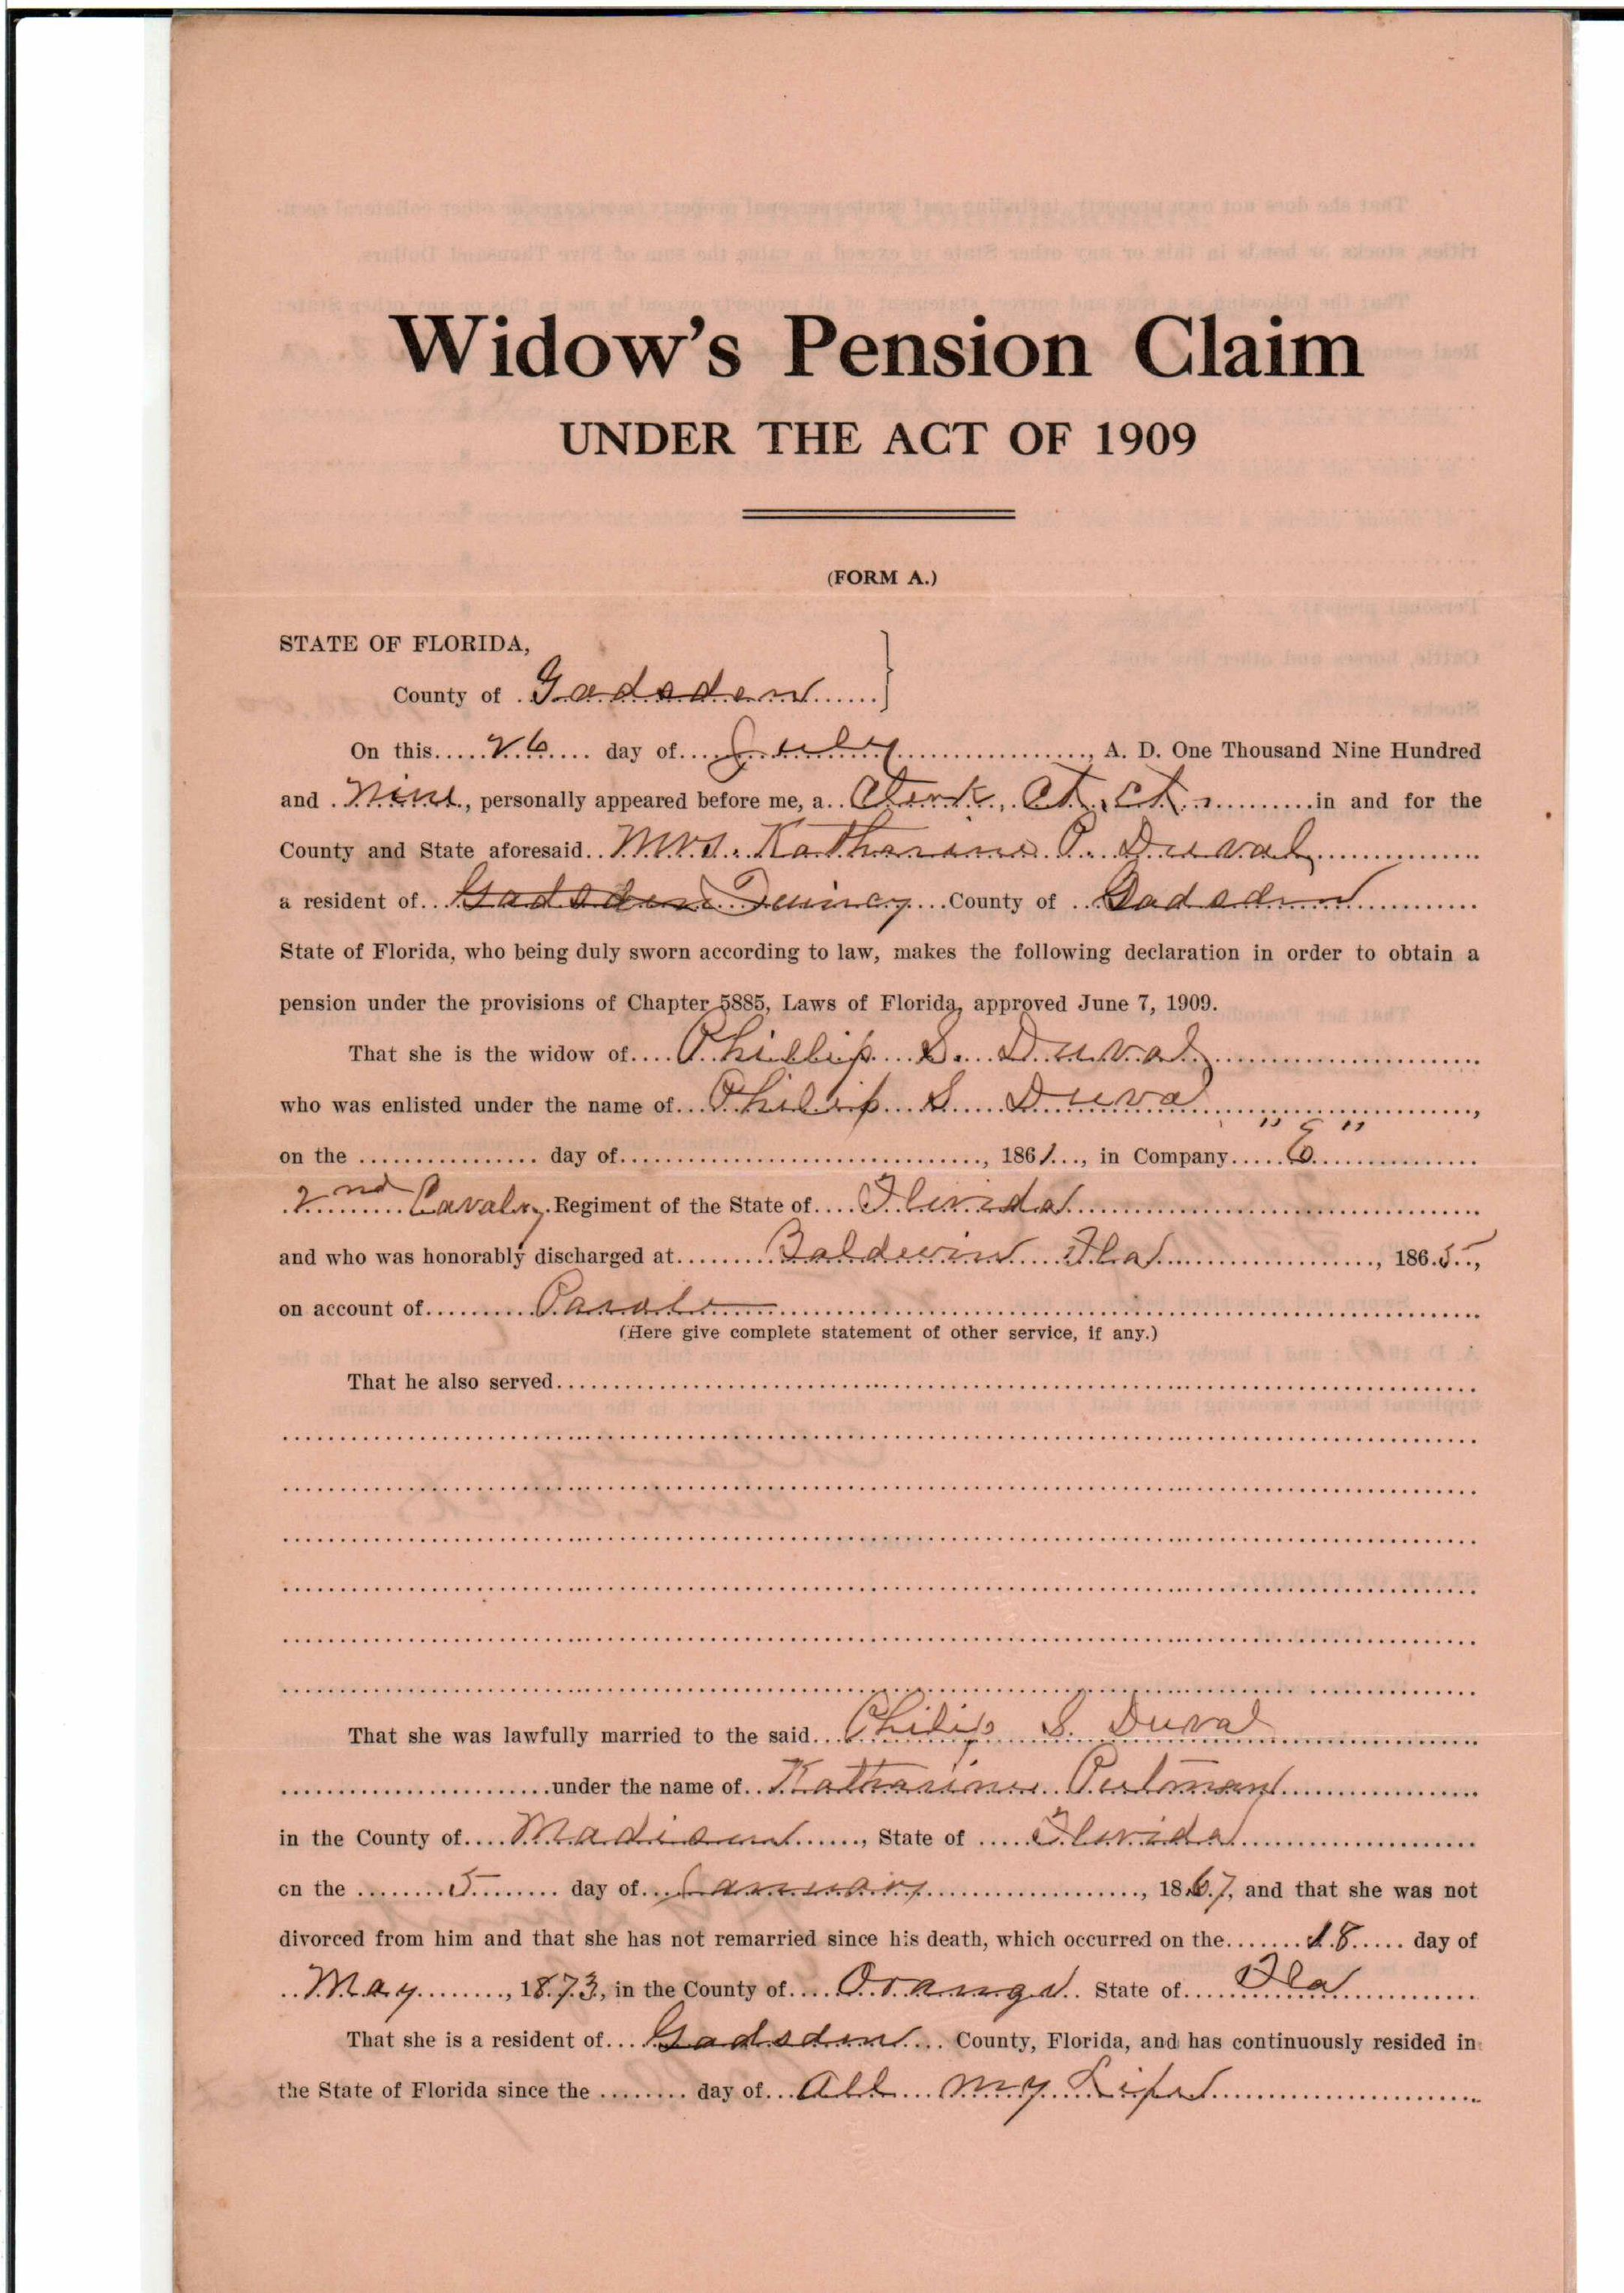 Widow's Pension Claim
UNDER THE ACT OF 1909
(FORM A.)
STATE OF FLORIDA,
County of Gadsden
On this 26 day of July, A. D. One Thousand Nine Hundred
and Nine, personally appeared before me, a Clerk, Ct. Ct. in and for the
County and State aforesaid Mrs. Katharine P. Duval,
a resident of Gadsden Quincy County of Gadsden
State of Florida, who being duly sworn according to law, makes the following declaration in order to obtain a
pension under the provisions of Chapter 5885, Laws of Florida, approved June 7, 1909.
That she is the widow of Phillip S. Duval
who was enlisted under the name of Philip S Duval,
on the day of, 1861, in Company "E"
2nd Cavalry Regiment of the State of Florida
and who was honorably discharged at Baldwin Fla, 1865,
on account of Parole
(Here give complete statement of other service, if any.)
That he also served
That she was lawfully married to the said Philip S. Duval
under the name of Katharine
in the County of Madison, State of Florida
on the 5 day of January, 1867, and that she was not
divorced from him and that she has not remarried since his death, which occurred on the 18 day of
May, 1873, in the County of Orange State of Fla
That she is a resident of Gadsden County, Florida, and has continuously resided in
the State of Florida since the day of All my Life